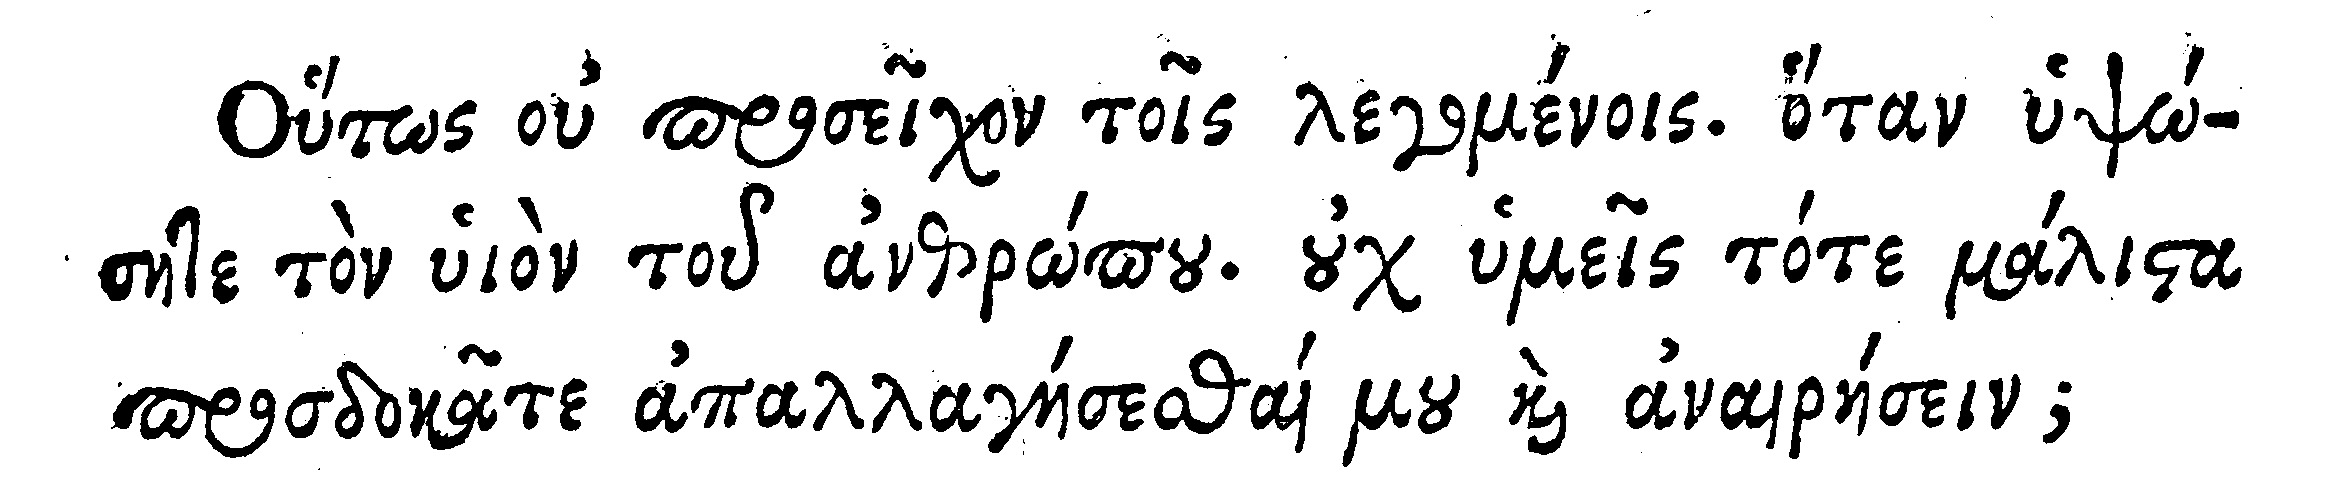 Οὕτως οὐ προσεῖχον τοῖς λεγομένοις. ὅταν ὑψώ-
σητε τὸν ὑιὸν τοῦ ἀνθρώπου. οὐχ ὑμεῖς τότε μάλιστα
προσδοκᾶτε ἀπαλλαγήσεσθαί μου καὶ ἀναιρήσειν;